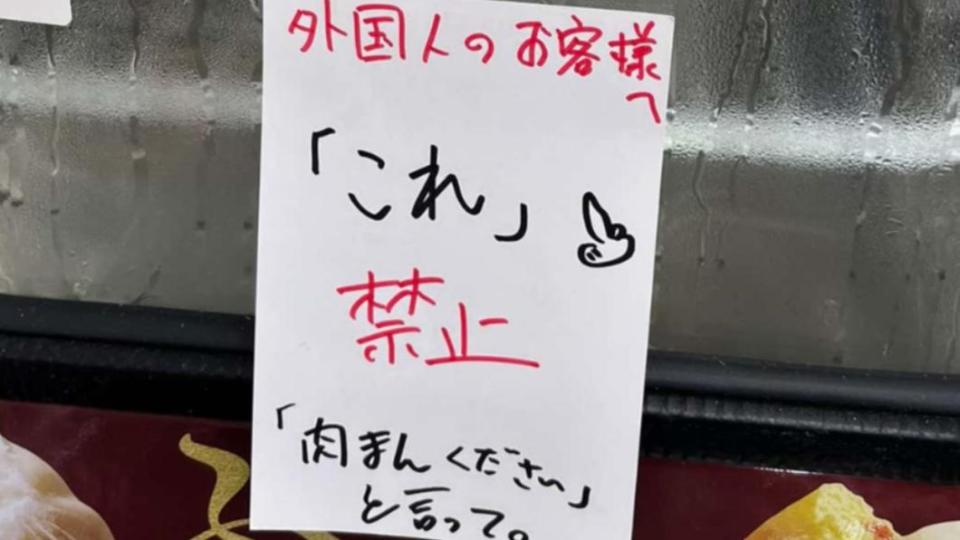 外国人のお客様
へ
「これ」
禁止
「肉まんください」
と言って。